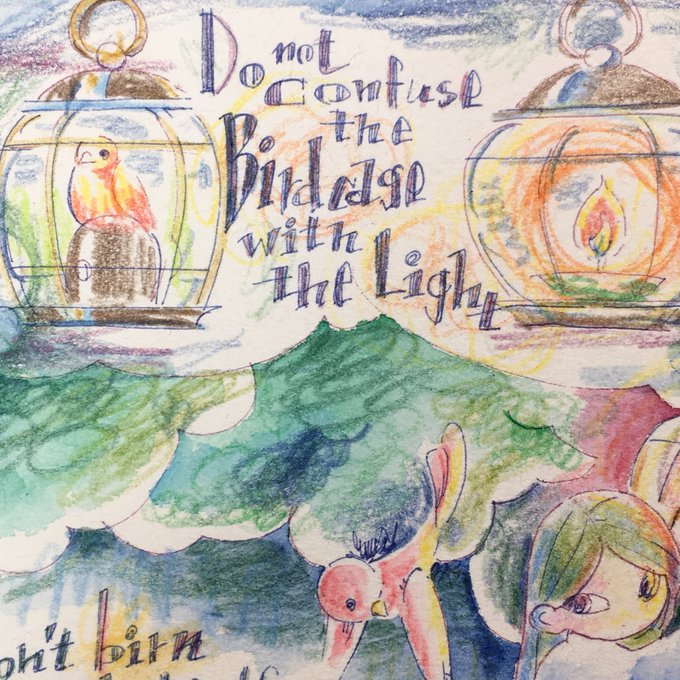 Do not
confuse
the
Birdcage
with
the Light
on't birn